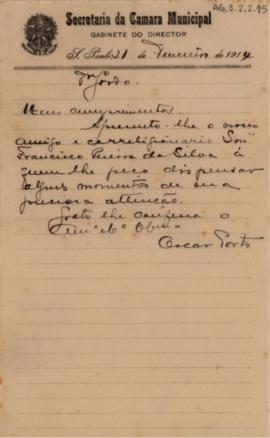 AG.3.2.2.15
Secretaria da Camara Municipal
GABINETE DO DIRECTOR
S. Paulo, 21 de Fevereiro de 1914
Meus cumprimentos.
Apresento-lhe o nosso
amigo e correligionario Snr
Francisco Pereira da Silva á
quem lhe peço dispensar
alguns momentos de sua
preciosa attenção.
Grato lhe
Oscar Porto